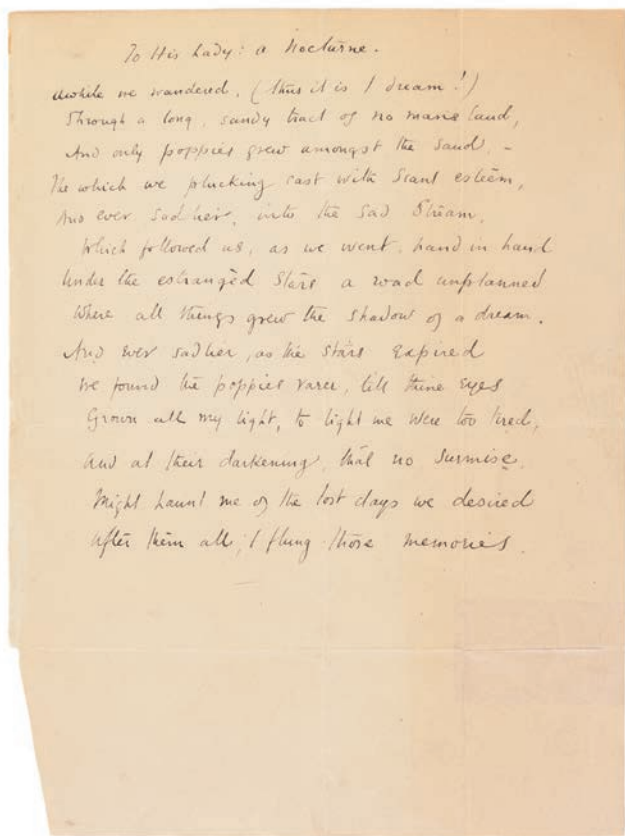 To His Lady: a Nocturne.
Awhile we wandered, (thus it is I dream!)
Through a long, sandy tract of no man's land,
And only poppies grew amongst the sand, -
The which we plucking cast with scant esteem,
And ever sadlier, into the sad Stream,
Which followed us, as we went, hand in hand
Under the estrangèd Stars a road unplanned
Where all things grew the shadow of a dream.
And ever sadlier, as the stars expired
We found the poppies rarer, till thine eyes
Grown all my light, to light me were too tired,
And at their darkening, that no surmise,
Might haunt me of the lost days we desired
After them all, I flung those memories.